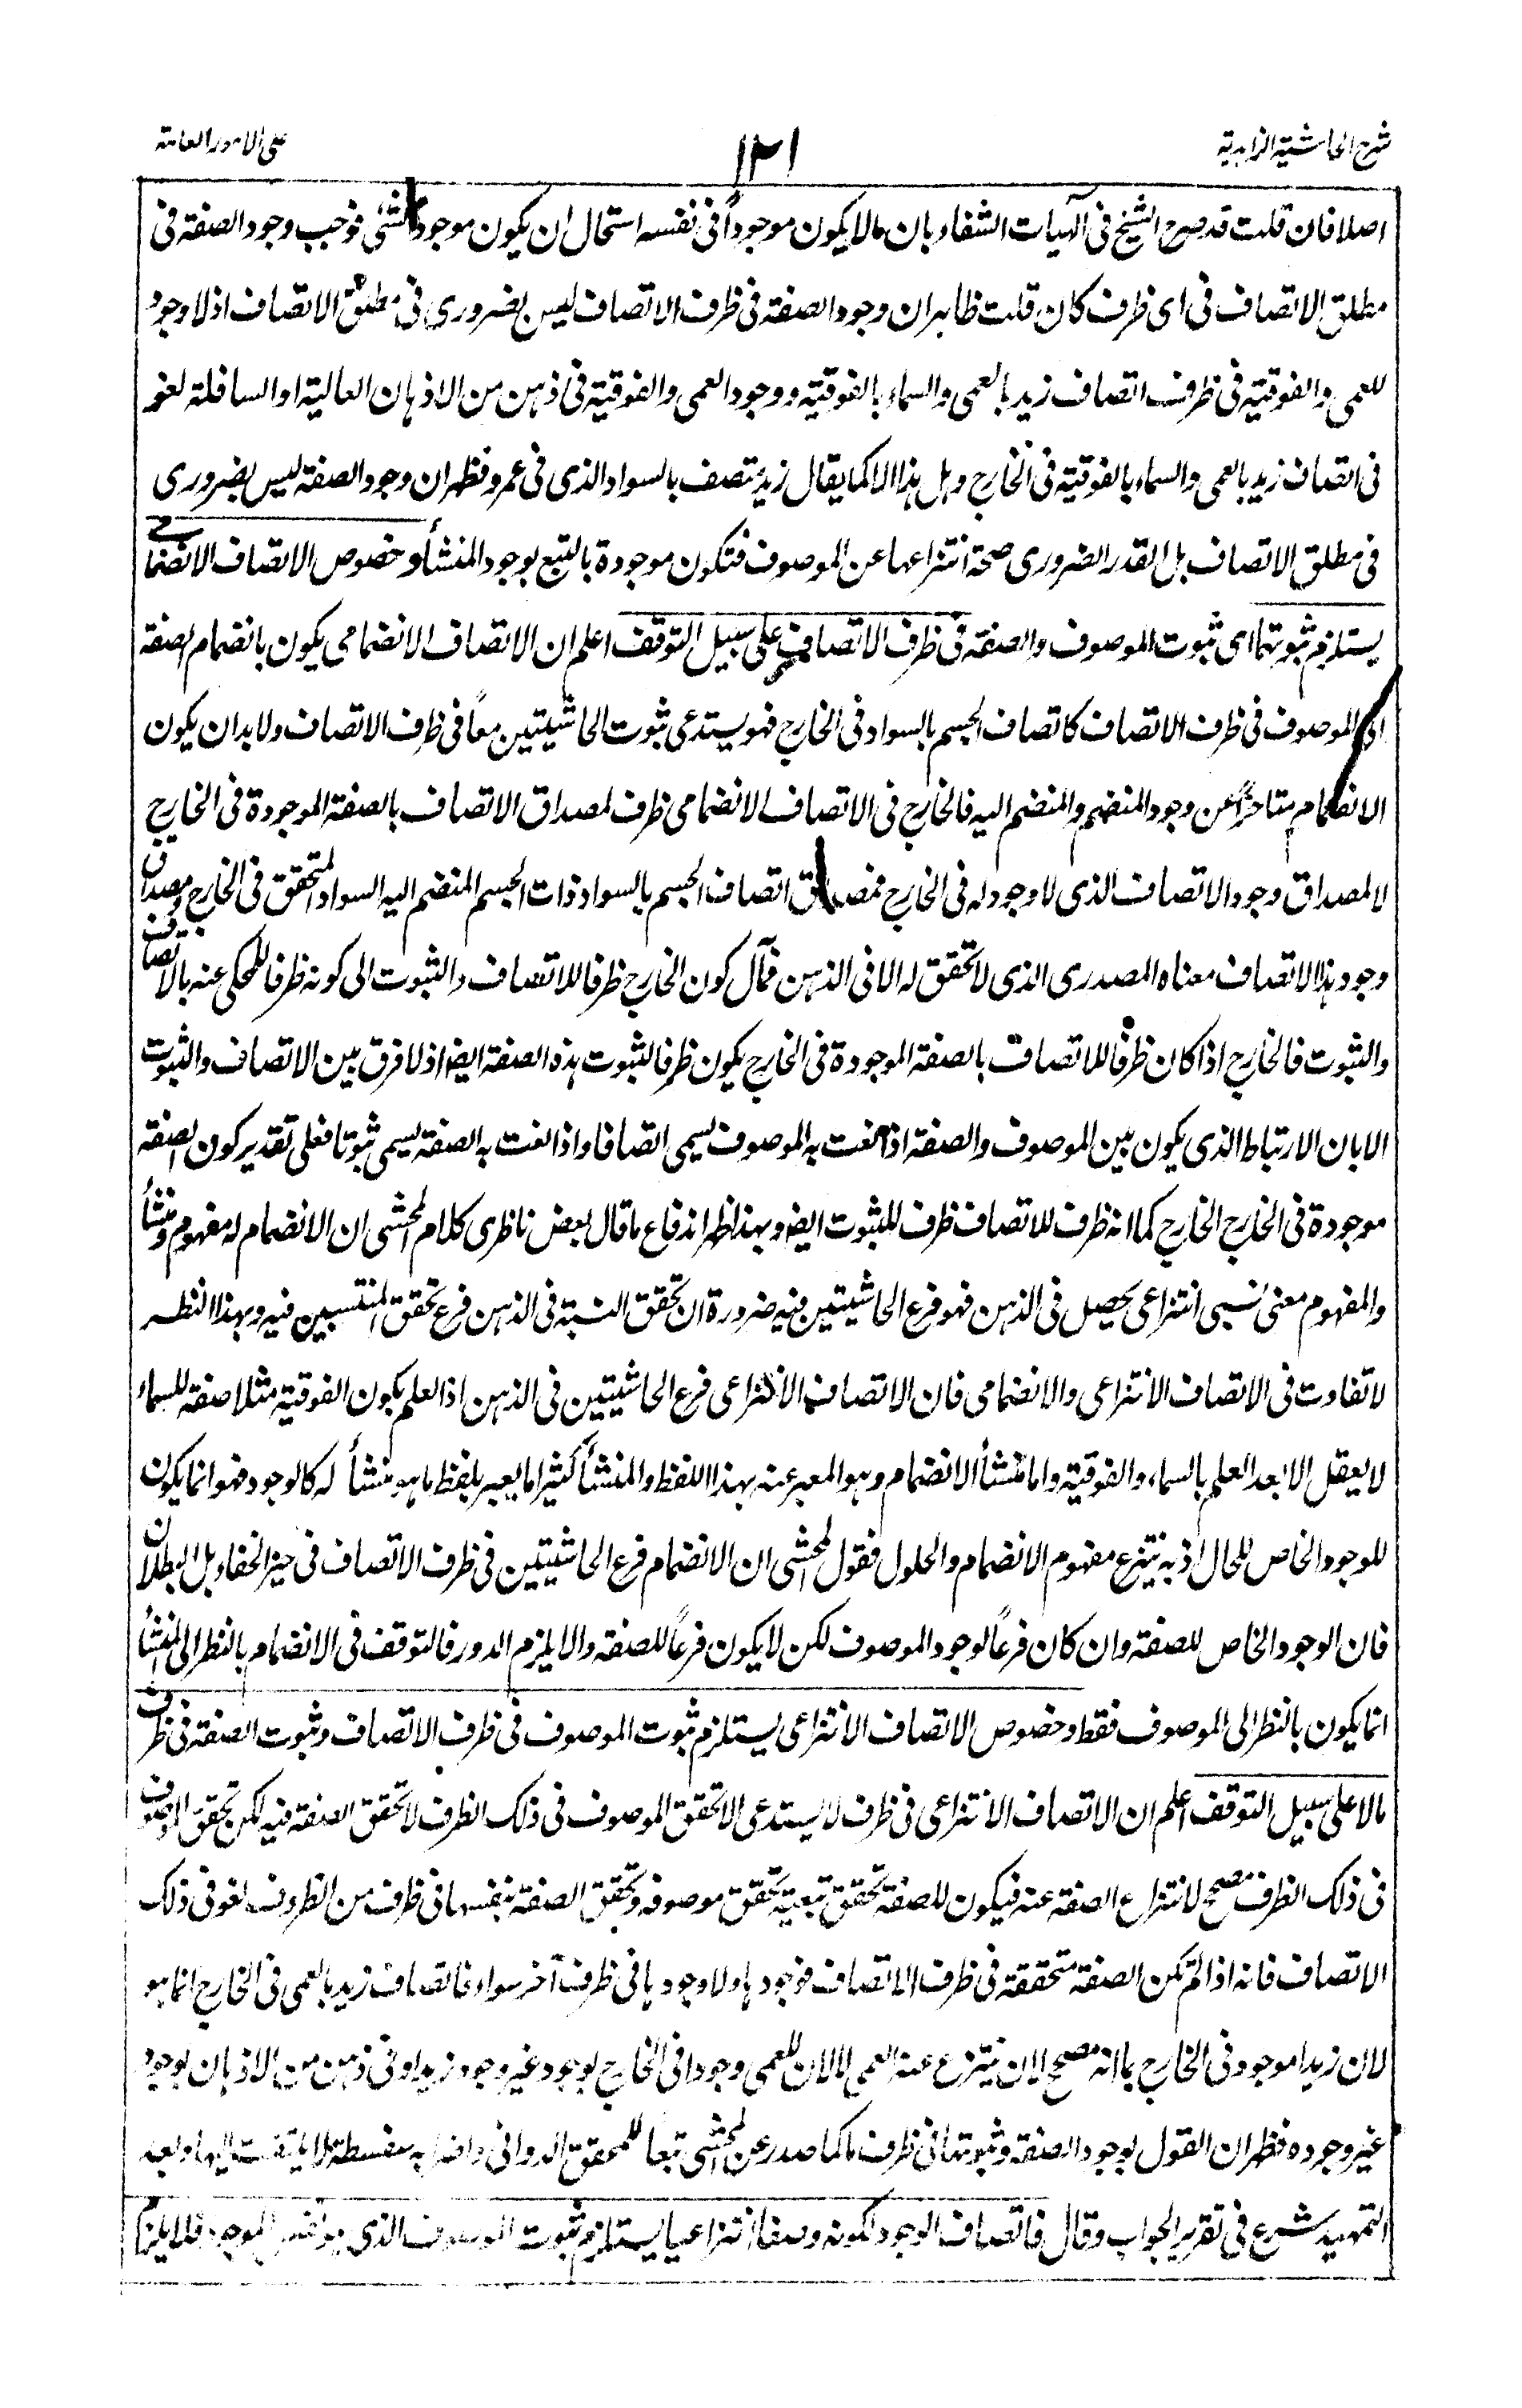 شرح الحاشية الزاهدية
١٢١
على الامور العامة
اصلا فان قلت قد صرح الشيخ فى آلهيات الشفاء بان ما لا يكون موجوداً فى نفسه استحال ان يكون موجودا لشئ فوجب وجود الصفة فى
مطلق الاتصاف فى اى ظرف كان قلت ظاهر ان وجود الصفة فى ظرف الاتصاف ليس بضرورى فى مطلق الاتصاف اذ لا وجود
للعمى والفوقية فى ظرف اتصاف زيد بالعمى والسماء بالفوقية ووجود العمى والفوقية فى ذهن من الاذهان العالية او السافلة لغو
فى اتصاف زيد بالعمى والسماء بالفوقية فى الخارج وهل هذا الا كما يقال زيد متصف بالسواد الذى فى عمرو فظهر ان وجود الصفة ليس بضرورى
فى مطلق الاتصاف بل القدر الضرورى صحة انتزاعها عن الموصوف فتكون موجودة بالتبع بوجود المنشأ وخصوص الاتصاف الانضمامى
يستلزم ثبوتهما اى ثبوت الموصوف والصفة فى ظرف الاتصاف على سبيل التوقف اعلم ان الاتصاف الانضمامى يكون بانضمام الصفة
الى الموصوف فى ظرف الاتصاف كاتصاف الجسم بالسواد فى الخارج فهو يستدعى ثبوت الحاشيتين معاً فى ظرف الاتصاف ولا بد ان يكون
الانضمام متاخراً عن وجود المنضم والمنضم اليه فالخارج فى الاتصاف الانضمامى ظرف لمصداق الاتصاف بالصفة الموجودة فى الخارج
لا لمصداق وجود الاتصاف الذى لا وجود له فى الخارج فمصداق اتصاف الجسم بالسواد ذات الجسم المنضم اليه السواد المتحقق فى الخارج ومصداق
وجود هذا الاتصاف معناه المصدرى الذى لا تحقق له الا فى الذهن فمآل كون الخارج ظرفا للاتصاف والثبوت الى كونه ظرفا للمحكى عنه بالاتصاف
والثبوت فالخارج اذا كان ظرفا للاتصاف بالصفة الموجودة فى الخارج يكون ظرفا لثبوت هذه الصفة ايضا اذ لا فرق بين الاتصاف والثبوت
الا بان الارتباط الذى يكون بين الموصوف والصفة اذا نعت به الموصوف يسمى اتصافا واذا نعت به الصفة يسمى ثبوتا فعلى تقدير كون الصفة
موجودة فى الخارج الخارج كما انه ظرف للاتصاف ظرف للثبوت ايضا وبهذا ظهر اندفاع ما قال بعض ناظرى كلام المحشى ان الانضمام له مفهوم ومنشأ
والمفهوم معنى نسبى انتزاعى يحصل فى الذهن فهو فرع الحاشيتين فيه ضرورة ان تحقق النسبة فى الذهن فرع تحقق المنتسبين فيه وبهذا النظر
لا تفاوت فى الاتصاف الانتزاعى والانضمامى فان الاتصاف الانتزاعى فرع الحاشيتين فى الذهن اذ العلم بكون الفوقية مثلا صفة للسماء
لا يعقل الا بعد العلم بالسماء والفوقية واما منشأ الانضمام وهو المعبر عنه بهذا اللفظ والمنشأ كثيرا ما يعبر بلفظ ما هو منشأ له كالوجود فهو انما يكون
للوجود الخاص للحال اذ به ينتزع مفهوم الانضمام والحلول فقول المحشى ان الانضمام فرع الحاشيتين فى ظرف الاتصاف فى حيز الخفاء بل البطلان
فان الوجود الخاص للصفة وان كان فرعاً لوجود الموصوف لكن لا يكون فرعاً للصفة والا يلزم الدور فالتوقف فى الانضمام بالنظر الى المنشأ
انما يكون بالنظر الى الموصوف فقط وخصوص الاتصاف الانتزاعى يستلزم ثبوت الموصوف فى ظرف الاتصاف وثبوت الصفة فى ظرف
ما لا على سبيل التوقف اعلم ان الاتصاف الانتزاعى فى ظرف لا يستدعى الا تحقق الموصوف فى ذلك الظرف لا تحقق الصفة فيه لكن تحقق الموصوف
فى ذلك الظرف مصحح لانتزاع الصفة عنه فيكون للصفة تحقق تبعية تحقق موصوفه وتحقق الصفة بنفسها فى ظرف من الظروف لغو فى ذلك
الاتصاف فانه اذا لم تكن الصفة متحققة فى ظرف الاتصاف فوجودها ولا وجودها فى ظرف آخر سواء فاتصاف زيد بالعمى فى الخارج انما هو
لان زيدا موجود فى الخارج بما انه مصحح لان ينتزع عنه العمى لا لان للعمى وجودا فى الخارج بوجود غير وجود زيد او فى ذهن من الاذهان بوجود
غير وجوده فظهر ان القول بوجود الصفة وثبوتها فى ظرف ما كما صدر عن المحشى تبعا للمحقق الدوانى واضرابه سفسطة لا يلتفت اليها وبعد
التمهيد شرع فى تقرير الجواب وقال فاتصاف الوجود لكونه وصفا انتزاعيا يستلزم ثبوت الموصوف الذى هو نفس الموجود فلا يلزم